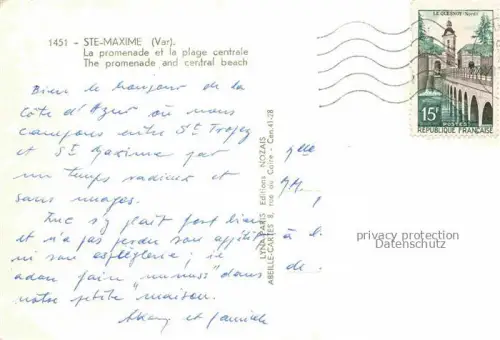 1451 - STE-MAXIME (Var).
La promenade et la plage centrale
The promenade and central beach
LE QUESNOY (Nord)
15f
REPUBLIQUE FRANÇAISE
Bien le bonjour de la
Côte d'Azur où nous
campons entre St Tropez
et St Maxime par
un temps radieux et
sans nuages.
Luc s'y plaît fort bien
et n'a pas perdu son appétit
ni son espièglerie; il
adore faire "mumuss" dans
notre petite "maison".
et famille
LYNA-PARIS Editions NOZAIS
ABEILLE-CARTES 8, rue du Caire - Cen.41-28
Mlle
M.
à l.
de.
privacy protection
Datenschutz